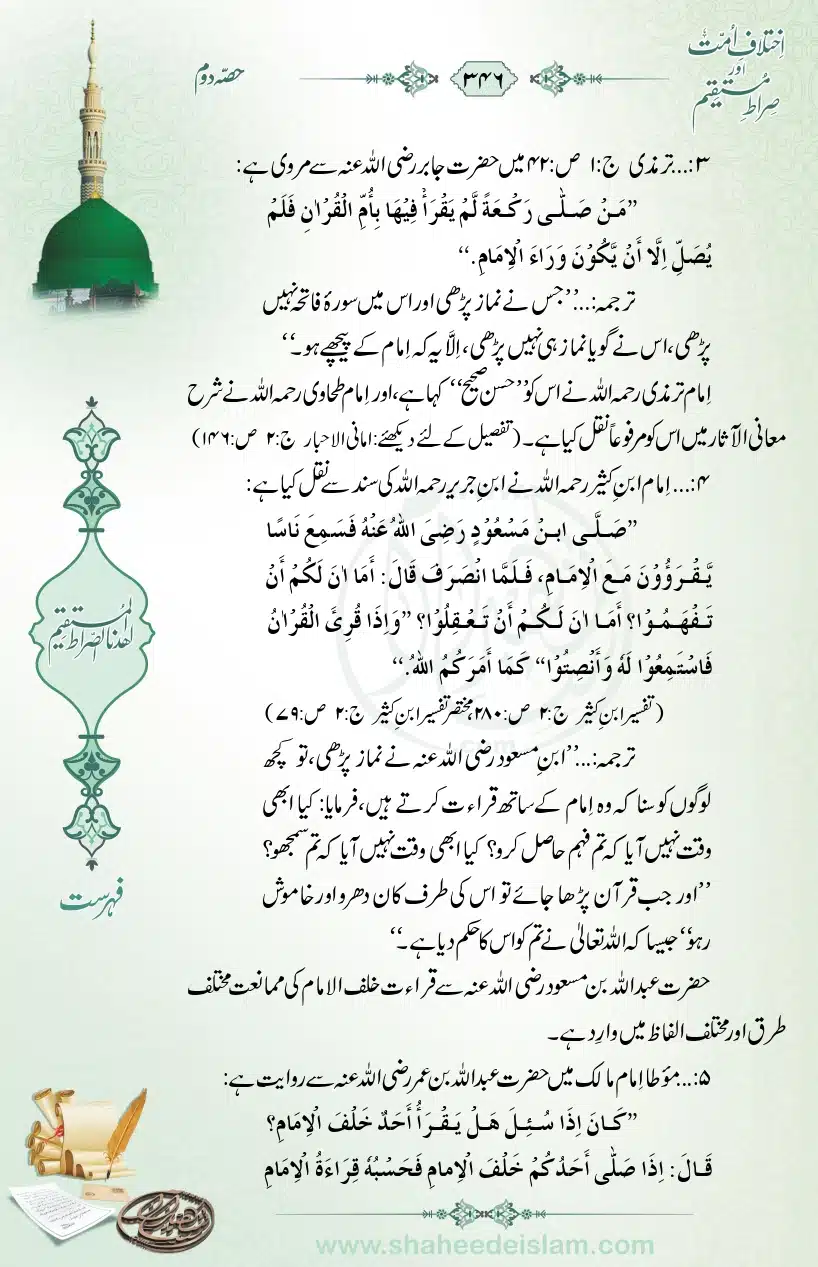 اِختلافِ اُمّت
اور
صِراطِ مُستقیم
۳۴۶
حصّہ دوم
۳:...ترمذی ج:۱ ص:۴۲ میں حضرت جابر رضی اللہ عنہ سے مروی ہے:
”مَنْ صَلّٰى رَكْعَةً لَّمْ يَقْرَأْ فِيْهَا بِأُمِّ الْقُرْاٰنِ فَلَمْ
يُصَلِّ اِلَّا أَنْ يَّكُوْنَ وَرَاءَ الْاِمَامِ.“
ترجمہ:...”جس نے نماز پڑھی اور اس میں سورۂ فاتحہ نہیں
پڑھی، اس نے گویا نماز ہی نہیں پڑھی، اِلَّا یہ کہ اِمام کے پیچھے ہو۔“
اِمام ترمذی رحمہ اللہ نے اس کو ”حسن صحیح“ کہا ہے، اور اِمام طحاوی رحمہ اللہ نے شرح
معانی الآثار میں اس کو مرفوعاً نقل کیا ہے۔ (تفصیل کے لئے دیکھئے: امانی الاحبار ج:۲ ص:۱۴۶)
۴:... اِمام ابنِ کثیر رحمہ اللہ نے ابنِ جریر رحمہ اللہ کی سند سے نقل کیا ہے:
”صَلَّى ابنْ مَسْعُوْدٍ رَضِيَ اللهُ عَنْهُ فَسَمِعَ نَاسًا
يَّقْرَؤُوْنَ مَعَ الْاِمَامِ، فَلَمَّا انْصَرَفَ قَالَ: أَمَا اٰنَ لَكُمْ أَنْ
تَفْهَمُوْا؟ أَمَا اٰنَ لَكُمْ أَنْ تَعْقِلُوْا؟ ”وَاِذَا قُرِئَ الْقُرْاٰنُ
فَاسْتَمِعُوْا لَهٗ وَأَنْصِتُوْا“ كَمَا أَمَرَكُمُ اللهُ.“
(تفسیر ابنِ کثیر ج:۲ ص:۲۸۰، مختصر تفسیر ابنِ کثیر ج:۲ ص:۷۹)
ترجمہ:...”ابنِ مسعود رضی اللہ عنہ نے نماز پڑھی، تو کچھ
لوگوں کو سنا کہ وہ اِمام کے ساتھ قراءت کرتے ہیں، فرمایا: کیا ابھی
وقت نہیں آیا کہ تم فہم حاصل کرو؟ کیا ابھی وقت نہیں آیا کہ تم سمجھو؟
”اور جب قرآن پڑھا جائے تو اس کی طرف کان دھرو اور خاموش
رہو“ جیسا کہ اللہ تعالیٰ نے تم کو اس کا حکم دیا ہے۔“
حضرت عبداللہ بن مسعود رضی اللہ عنہ سے قراءت خلف الامام کی ممانعت مختلف
طرق اور مختلف الفاظ میں وارِد ہے۔
۵:...مؤطا اِمام مالک میں حضرت عبداللہ بن عمر رضی اللہ عنہ سے روایت ہے:
”كَانَ اِذَا سُئِلَ هَلْ يَقْرَأُ أَحَدٌ خَلْفَ الْاِمَامِ؟
قَالَ: اِذَا صَلّٰى أَحَدُكُمْ خَلْفَ الْاِمامِ فَحَسْبُهٗ قِرَاءَةُ الْاِمَامِ
اِهْدِنَا الصِّرَاطَ الْمُسْتَقِيْمَ
فہرست
www.shaheedeislam.com